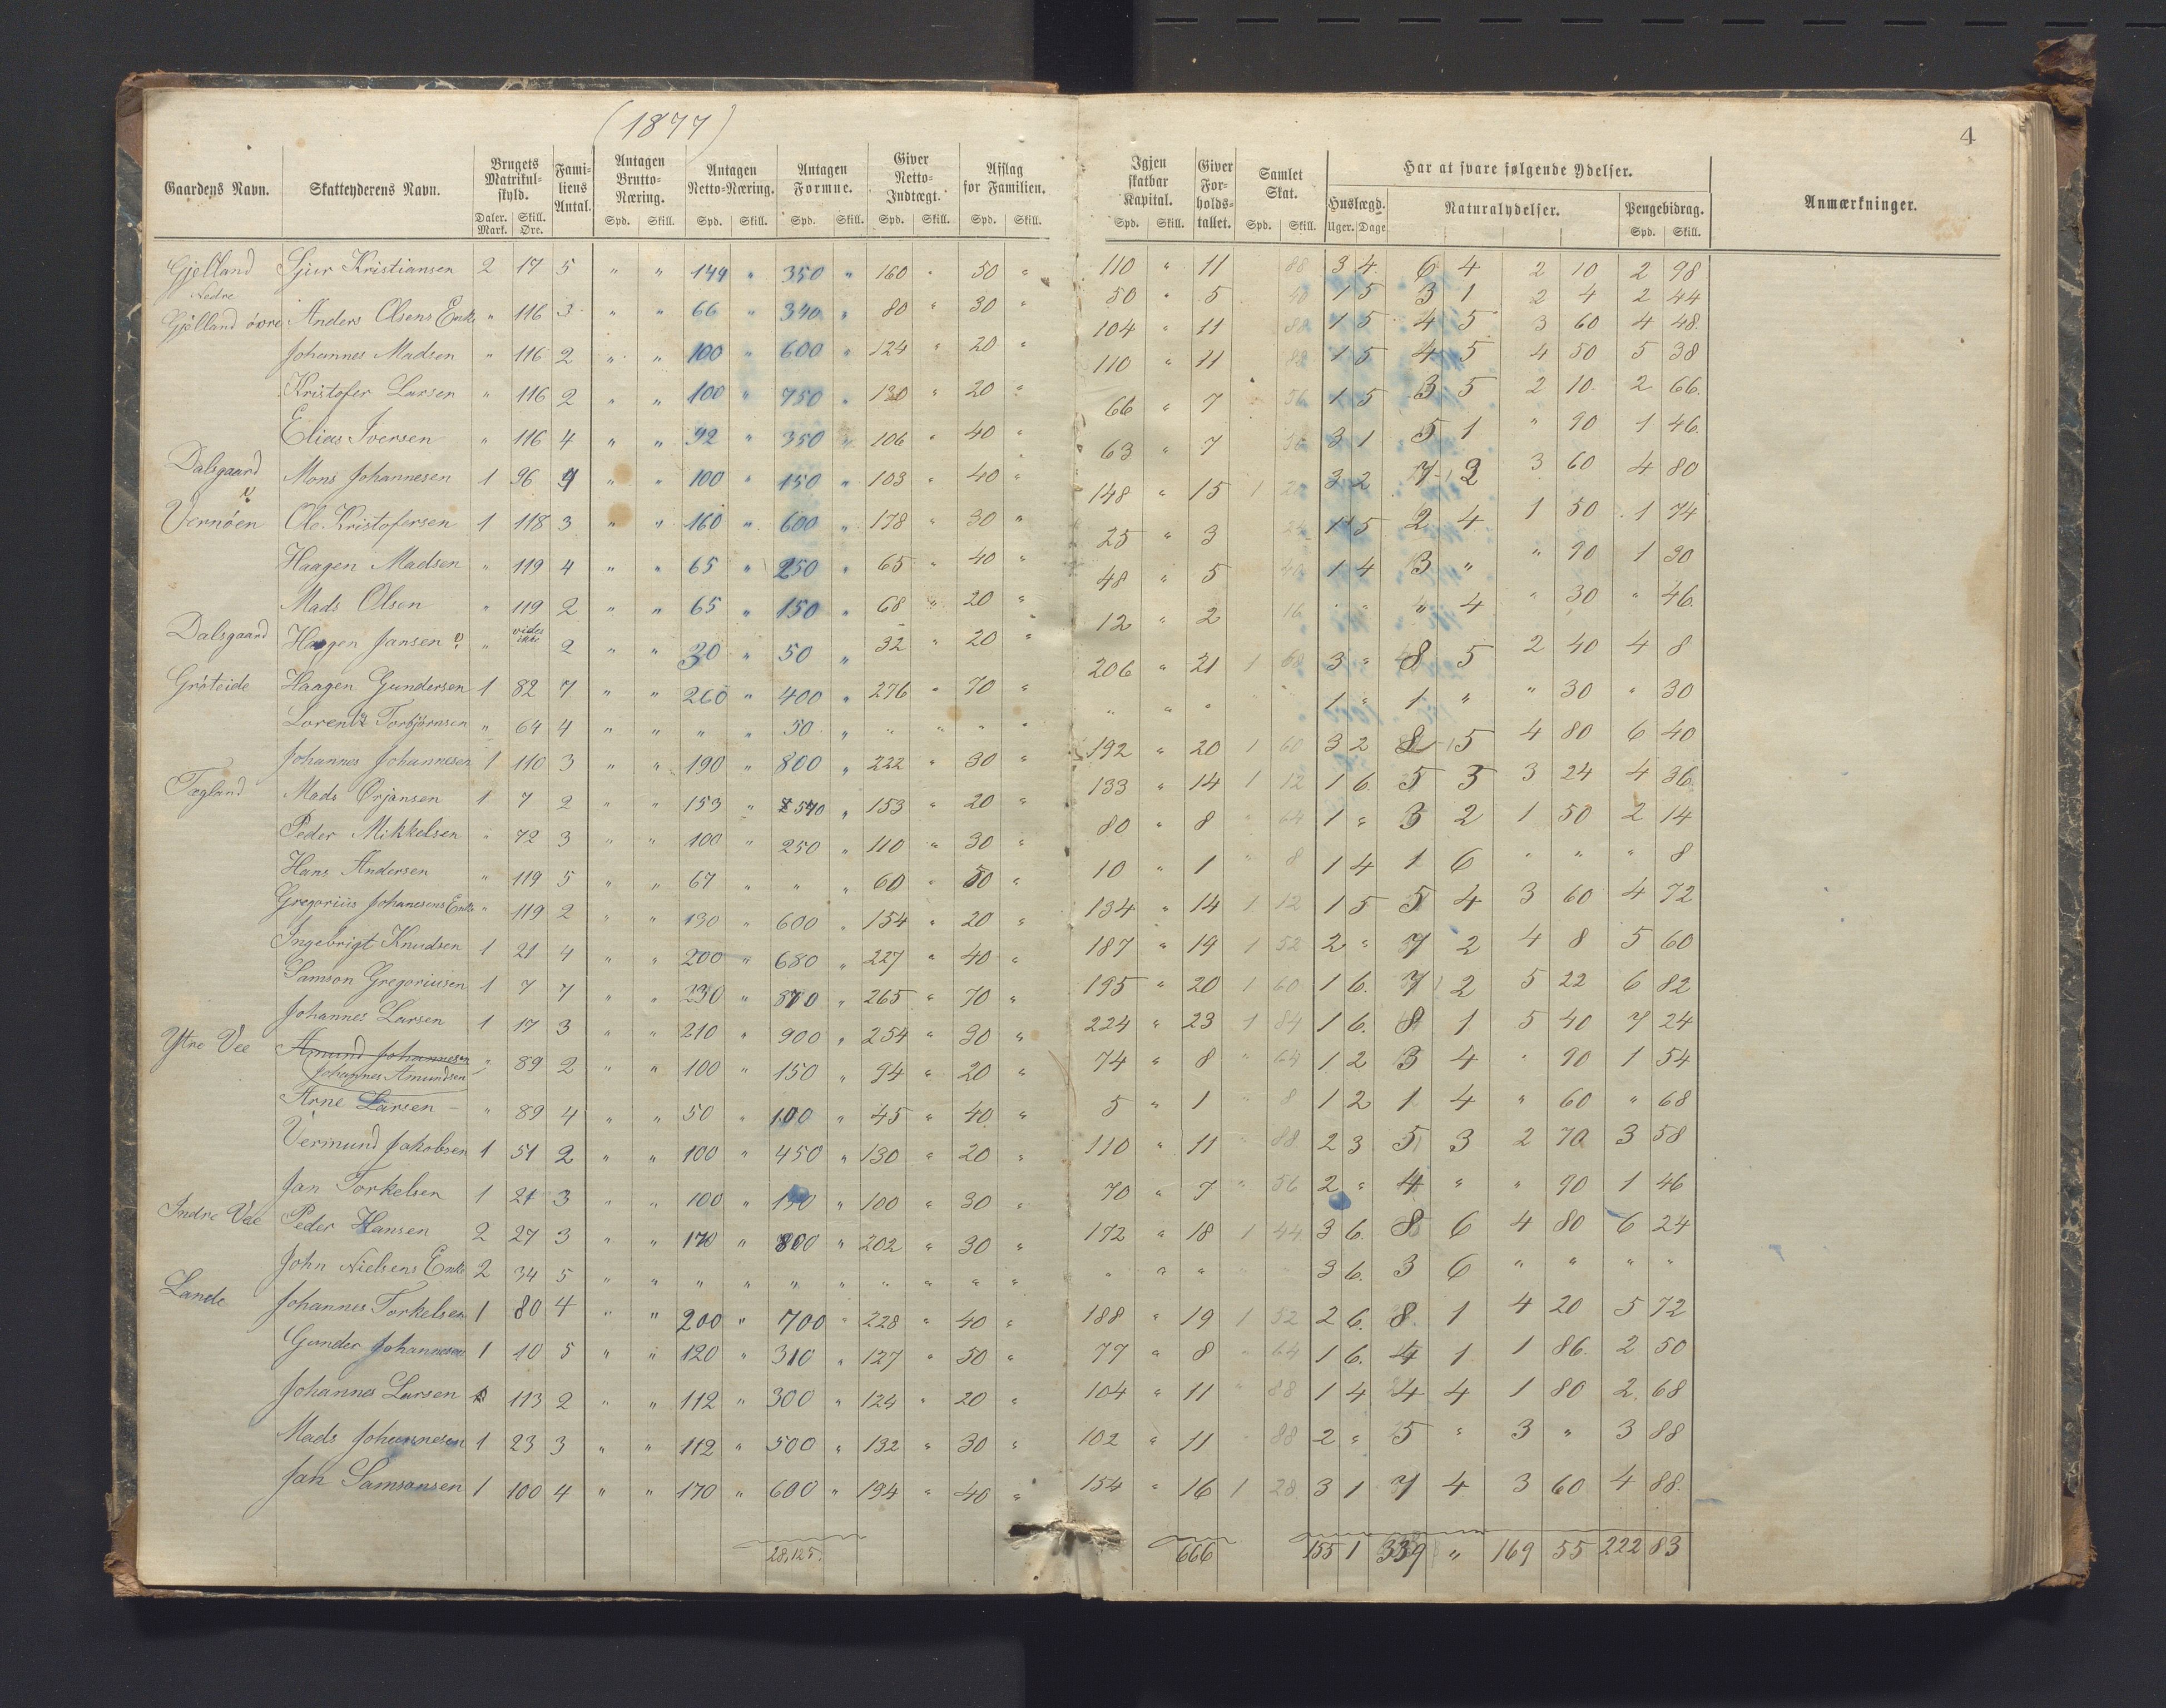 (1877)
4
Gaardens Navn. Skatteyderens Navn. Brugets Matrikul-skyld. Daler. Mark. Skill. Øre. Fami-liens Antal. Antagen Brutto-Næring. Spd. Skill. Antagen Netto-Næring. Spd. Skill. Antagen Formue. Spd. Skill. Giver Netto-Indtægt. Spd. Skill. Afslag for Familien. Spd. Skill. Igjen skatbar Kapital. Spd. Skill. Giver For-holds-tallet. Samlet Skat. Spd. Skill. Har at svare følgende Ydelser. Huslægd. Uger. Dage Naturalydelser. Pengebidrag. Spd. Skill. Anmærkninger.
Gjelland Nedre Sjur Kristiansen 2 17 5 " " 144 " 350 " 160 " 50 " 110 " 11 88 3 4 6 4 2 10 2 98
Gjölland övre Anders Olsens Enke " 116 3 " " 66 " 340 " 80 " 30 " 50 " 5 40 1 5 3 1 2 4 2 44
Johannes Madsen " 116 2 " " 100 " 600 " 124 " 20 " 104 " 11 88 1 5 4 5 3 60 4 48
Kristofer Larsen " 116 2 " " 100 " 750 " 130 " 20 " 110 " 11 88 1 5 4 5 4 50 5 38
Elias Iversen " 116 4 " " 92 " 350 " 106 " 40 " 66 " 7 56 1 5 3 5 2 10 2 66
Dalsgaard Mons Johannesen 1 96 4 " " 100 " 150 " 103 " 40 " 63 " 7 56 3 1 5 1 " 90 1 46
Vernöen Ole Kristofersen 1 118 3 " " 160 " 600 " 178 " 30 " 148 " 15 1 20 3 2 7 2 3 60 4 80
Haagen Madsen " 119 4 " " 65 " 250 " 65 " 40 " 25 " 3 24 1 5 2 4 1 50 1 74
Mads Olsen " 119 2 " " 65 " 150 " 68 " 20 " 48 " 5 40 1 4 3 " " 90 1 30
Dalsgaard Haagen Jansen " vides ikke 2 " " 30 " 50 " 32 " 20 " 12 " 2 16 " " " 4 " 30 " 46
Gröteide Haagen Gundersen 1 82 7 " " 260 " 400 " 276 " 70 " 206 " 21 1 68 3 " 8 5 2 40 4 8
Lorentz Torbjörnsen " 64 4 " " " " 50 " " " " " " " " 1 " 1 " " 30 " 30
Johannes Johannesen 1 110 3 " " 190 " 800 " 222 " 30 " 192 " 20 1 60 3 2 8 5 4 80 6 40
Tægland Mads Örjansen 1 7 2 " " 153 " 540 " 153 20 " 133 " 14 1 12 1 6 5 3 3 24 4 36
Peder Mikkelsen " 72 3 " " 100 " 250 " 110 " 30 " 80 " 8 " 64 1 " 3 2 1 50 2 14
Hans Andersen " 119 5 " " 67 " " " 60 " 50 " 10 " 1 " 8 1 4 1 6 " " " 8
Gregorius Johanesens Enke " 119 2 " " 130 " 600 " 154 " 20 " 134 " 14 1 12 1 5 5 4 3 60 4 72
Ingebrigt Knudsen 1 21 4 " " 200 " 680 " 227 " 40 " 187 " 19 1 52 2 " 7 2 4 8 5 60
Samson Gregoriusen 1 7 7 " " 230 " 870 " 265 " 70 " 195 " 20 1 60 1 6 7 2 5 22 6 82
Johannes Larsen 1 17 3 " " 210 " 900 " 254 " 30 " 224 " 23 1 84 1 6 8 1 5 40 7 24
Ytre Vee Amund Johannesen " 89 2 " " 100 " 150 " 94 " 20 " 74 " 8 " 64 1 2 3 4 " 90 1 54
Johannes Amundsen
Arne Larsen " 89 4 " " 50 " 100 " 45 " 40 " 5 " 1 " 8 1 2 1 4 " 60 " 68
Vermund Jakobsen 1 51 2 " " 100 " 450 " 130 " 20 " 110 " 11 " 88 2 3 5 3 2 70 3 58
Jan Torkelsen 1 21 3 " " 100 " 150 " 100 " 30 " 70 " 7 " 56 2 " 4 " " 90 1 46
Indre Vee Peder Hansen 2 27 3 " " 170 " 800 " 202 " 30 " 172 " 18 1 44 3 6 8 6 4 80 6 24
John Nielsens Enke 2 34 5 " " " " " " " " " " " " " 3 6 3 6 " " " "
Lande Johannes Torkelsen 1 80 4 " " 200 " 700 " 228 " 40 " 188 " 19 1 52 2 6 8 1 4 20 5 72
Gunder Johannesen 1 10 5 " " 120 " 310 " 127 " 50 " 77 " 8 " 64 1 6 4 1 1 86 2 50
Johannes Larsen 113 2 " " 112 " 300 " 124 " 20 " 104 " 11 " 88 1 4 4 4 1 80 2 68
Mads Johannesen 1 23 3 " " 112 " 500 " 132 " 30 " 102 " 11 " 88 2 " 5 " 3 " 3 88
Jan Samsonsen 1 100 4 " " 170 " 600 " 194 " 40 " 154 " 16 1 28 3 1 7 4 3 60 4 88
28,125. 666 155 1 339 " 169 55 222 83